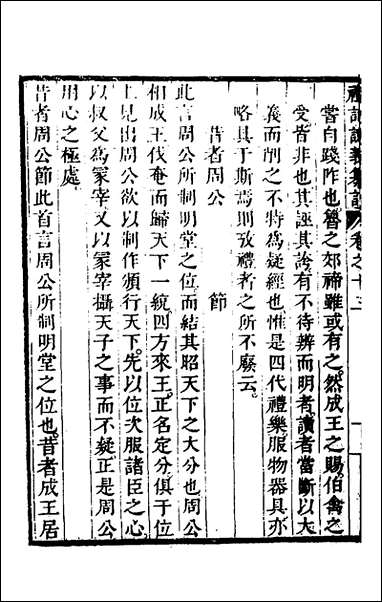 禮記講義集說 卷之十三
嘗自踐阼也魯之郊禘雖或有之然成王之賜伯禽之
受皆非也其誣其誇有不待辨而明者讀者當斷以大
義而削之不特為疑經也惟是四代禮樂服物器具亦
略具于斯焉則攷禮者之所不廢云
昔者周公 節
此言周公所制明堂之位而結其昭天下之大分也周公
相成王伐奄而歸天下一統四方來王正名定分俱于位
上見出周公欲以制作頒行天下先以位次服諸臣之心
以叔父為冢宰又以冢宰攝天子之事而不疑正是周公
用心之極處
昔者周公節此首言周公所制明堂之位也昔者成王居